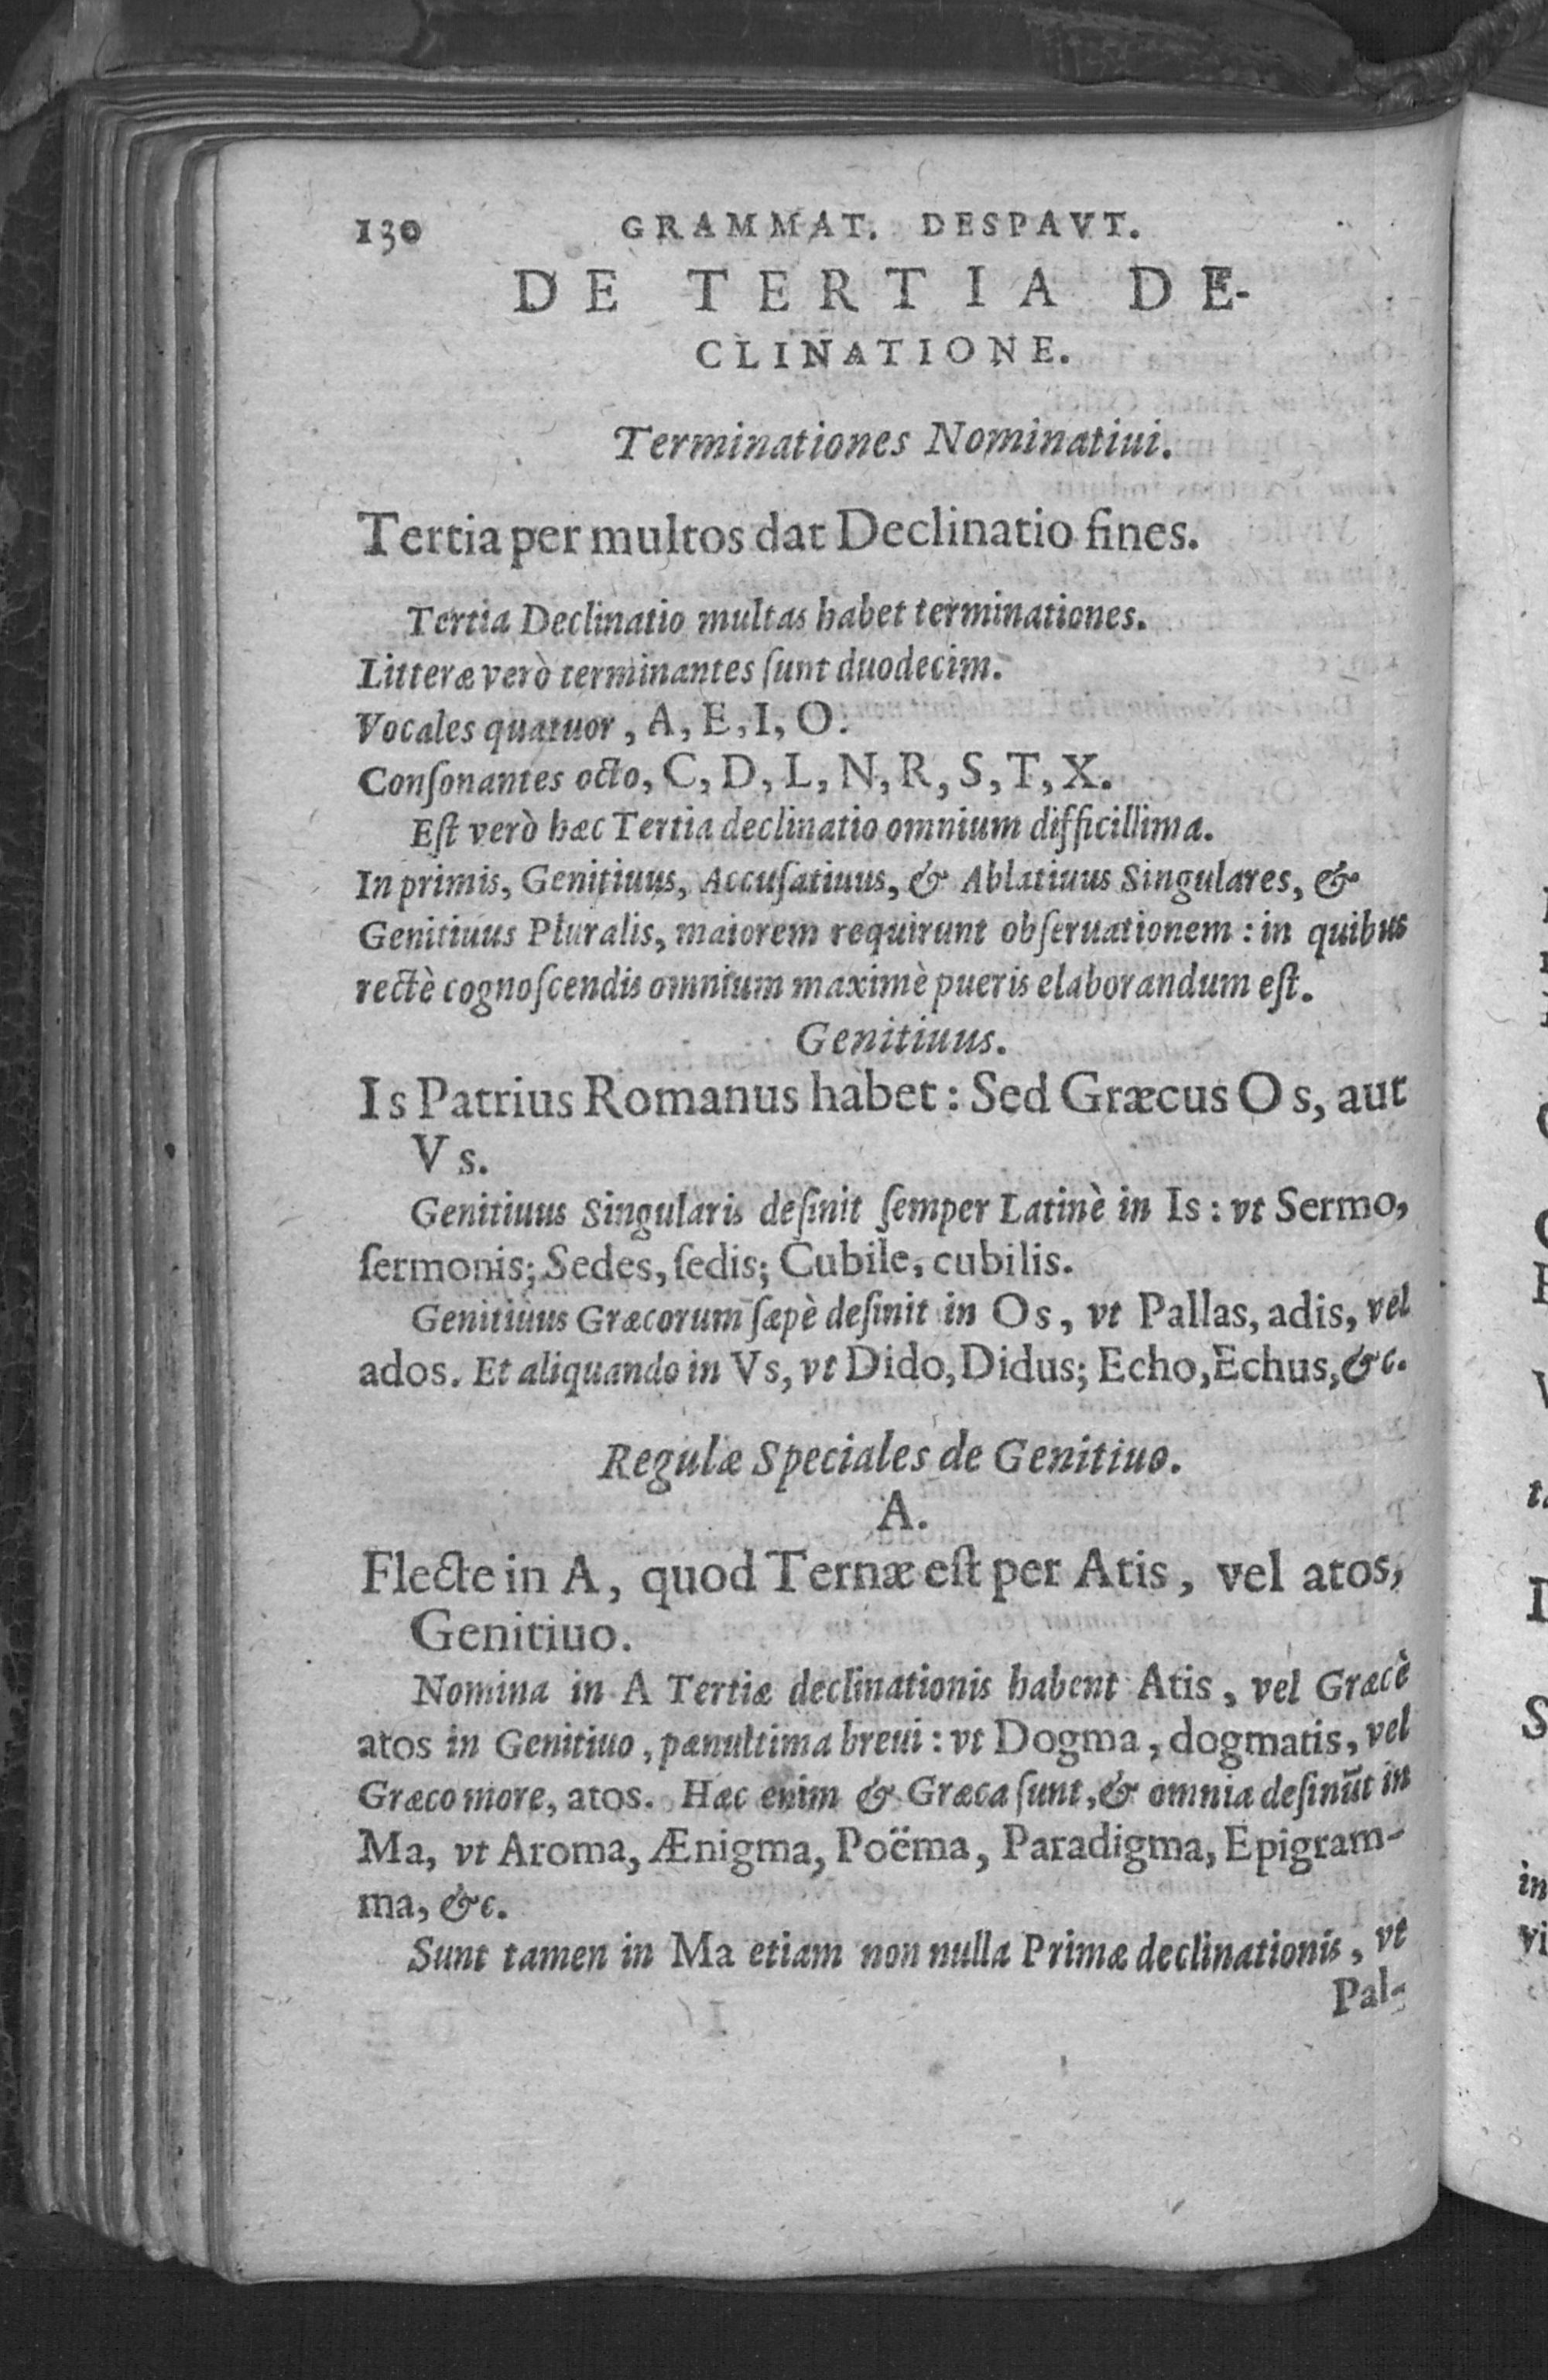 130 GRAMMAT. DESPAVT.
DE TERTIA DE-
CLINATIONE.
Terminationes Nominatiui.
Tertia per multos dat Declinatio fines.
Tertia Declinatio multas habet terminationes.
Litteræ verò terminantes ſunt duodecim.
Vocales quatuor, A, E, I, O.
Conſonantes octo, C, D, L, N, R, S, T, X.
Eſt verò hæc Tertia declinatio omnium difficillima.
In primis, Genitiuus, Accuſatiuus, & Ablatiuus Singulares, &
Genitiuus Pluralis, maiorem requirunt obſeruationem: in quibus
rectè cognoſcendis omnium maximè pueris elaborandum eſt.
Genitiuus.
Is Patrius Romanus habet: Sed Græcus Os, aut
Vs.
Genitiuus Singularis deſinit ſemper Latinè in Is: vt Sermo,
ſermonis; Sedes, ſedis; Cubile, cubilis.
Genitiuus Græcorum ſæpè deſinit in Os, vt Pallas, adis, vel
ados. Et aliquando in Vs, vt Dido, Didus; Echo, Echus, &c.
Regulæ Speciales de Genitiuo.
A.
Flecte in A, quod Ternæ eſt per Atis, vel atos,
Genitiuo.
Nomina in A Tertiæ declinationis habent Atis, vel Græcè
atos in Genitiuo, pænultima breui: vt Dogma, dogmatis, vel
Græco more, atos. Hæc enim & Græca ſunt, & omnia deſinūt in
Ma, vt Aroma, Ænigma, Poëma, Paradigma, Epigram-
ma, &c.
Sunt tamen in Ma etiam non nulla Primæ declinationis, vt
Pal-